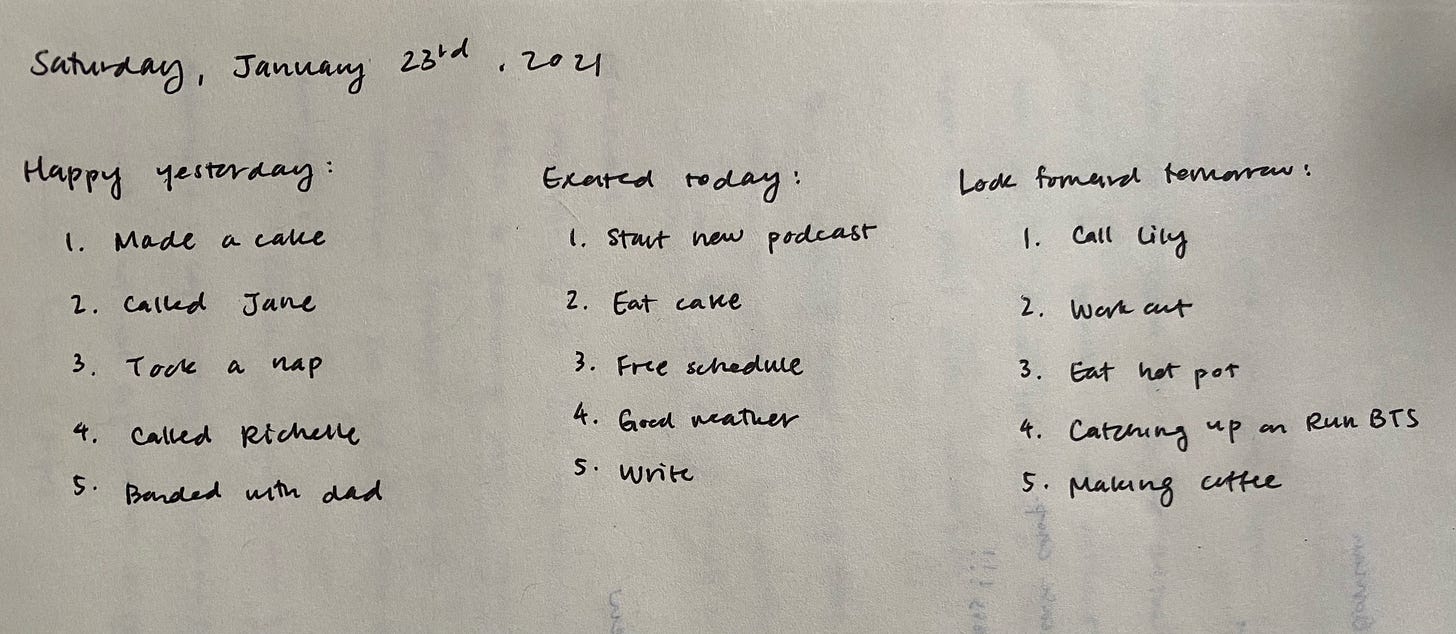 Saturday, January 23rd, 2021
Happy yesterday:
1. Made a cake
2. Called Jane
3. Took a nap
4. Called Richelle
5. Bonded with dad
Excited today:
1. Start new podcast
2. Eat cake
3. Free schedule
4. Good weather
5. Write
Look forward tomorrow:
1. Call Lily
2. Work out
3. Eat hot pot
4. Catching up on Run BTS
5. Making coffee